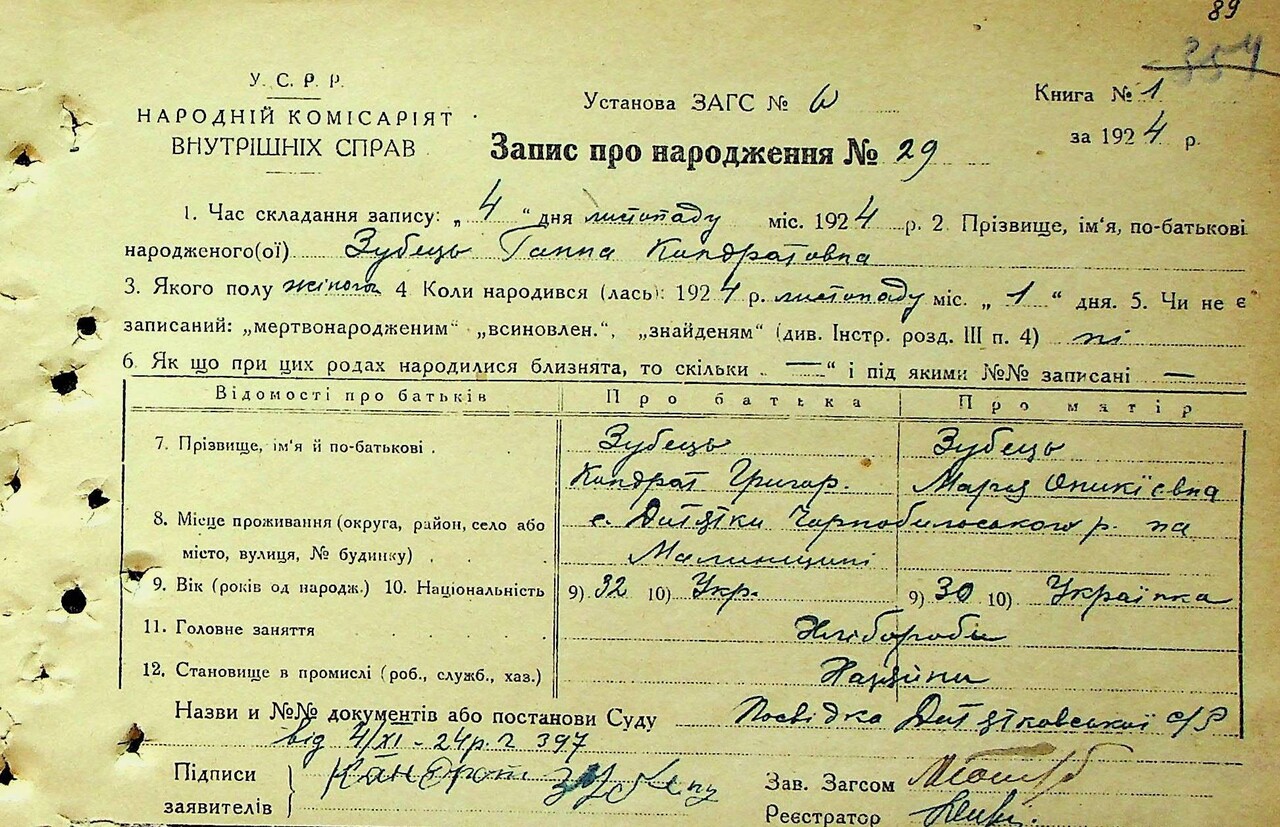 89
354
У. С. Р. Р.
НАРОДНІЙ КОМІСАРІЯТ
ВНУТРІШНІХ СПРАВ
Установа ЗАГС №
Книга № 1
за 1924 р.
Запис про народження № 29
1. Час складання запису: „4“ дня листопаду міс. 1924 р. 2. Прізвище, ім'я, по-батькові
народженого(ої) Зубець Ганна Кондратовна
3. Якого полу жіного 4 Коли народився (лась): 1924 р. листопаду міс. „1“ дня. 5. Чи не є
записаний: „мертвонародженим“ „всиновлен.“, „знайденям“ (див. Інстр. розд. III п. 4) ні
6. Як що при цих родах народилися близнята, то скільки „—“ і під якими №№ записані —
Відомості про батьків Про батька Про матір
7. Прізвище, ім'я й по-батькові Зубець Зубець
Кондрат Григор. Марія Оникієвна
8. Місце проживання (округа, район, село або с. Дитятки Чорнобильського р. на
місто, вулиця, № будинку) Малинщині
9. Вік (років од народж.) 10. Національність 9) 32 10) Укр. 9) 30 10) Українка
11. Головне заняття Хлібороби
12. Становище в промислі (роб., служб., хаз.) Хазяїни
Назви и №№ документів або постанови Суду Посвідка Дитятковської с/Р
від 4/XI - 24р. г 397
Підписи
заявителів Кандрат Зубець
Зав. Загсом
Реєстратор